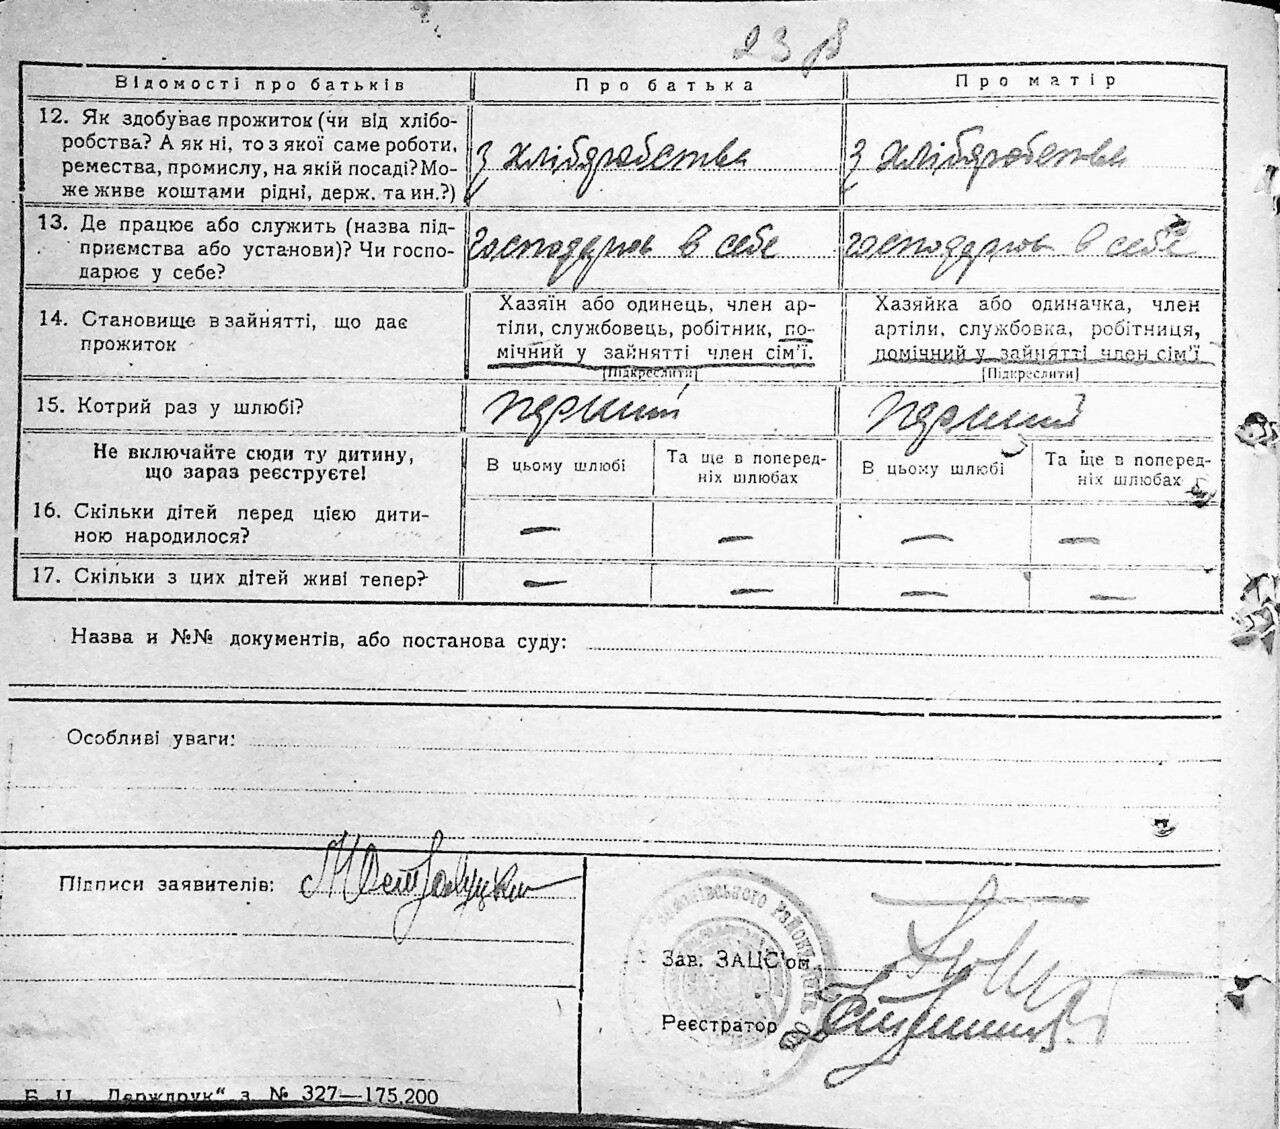 23
Відомості про батьків
Про батька
Про матір
12. Як здобуває прожиток (чи від хлібо-
робства? А як ні, то з якої саме роботи,
ремества, промислу, на якій посаді? Мо-
же живе коштами рідні, держ. та ин.?)
З хліборобства
З хліборобства
13. Де працює або служить (назва під-
приємства або установи)? Чи госпо-
дарює у себе?
господарює в себе
господарює в себе
14. Становище в зайнятті, що дає
прожиток
Хазяїн або одинець, член ар-
тіли, службовець, робітник, по-
мічний у зайнятті член сім'ї.
[Підкреслити]
Хазяйка або одиначка, член
артіли, службовка, робітниця,
помічний у зайнятті член сім'ї
[Підкреслити]
15. Котрий раз у шлюбі?
перший
перший
Не включайте сюди ту дитину,
що зараз реєструєте!
В цьому шлюбі
Та ще в поперед-
ніх шлюбах
В цьому шлюбі
Та ще в поперед-
ніх шлюбах
16. Скільки дітей перед цією дити-
ною народилося?
—
—
—
—
17. Скільки з цих дітей живі тепер?
—
—
—
—
Назва и №№ документів, або постанова суду:
Особливі уваги:
Підписи заявителів:
Зав. ЗАЦС'ом
Реєстратор
Б. Ц. „Держдрук“ з. № 327—175.200